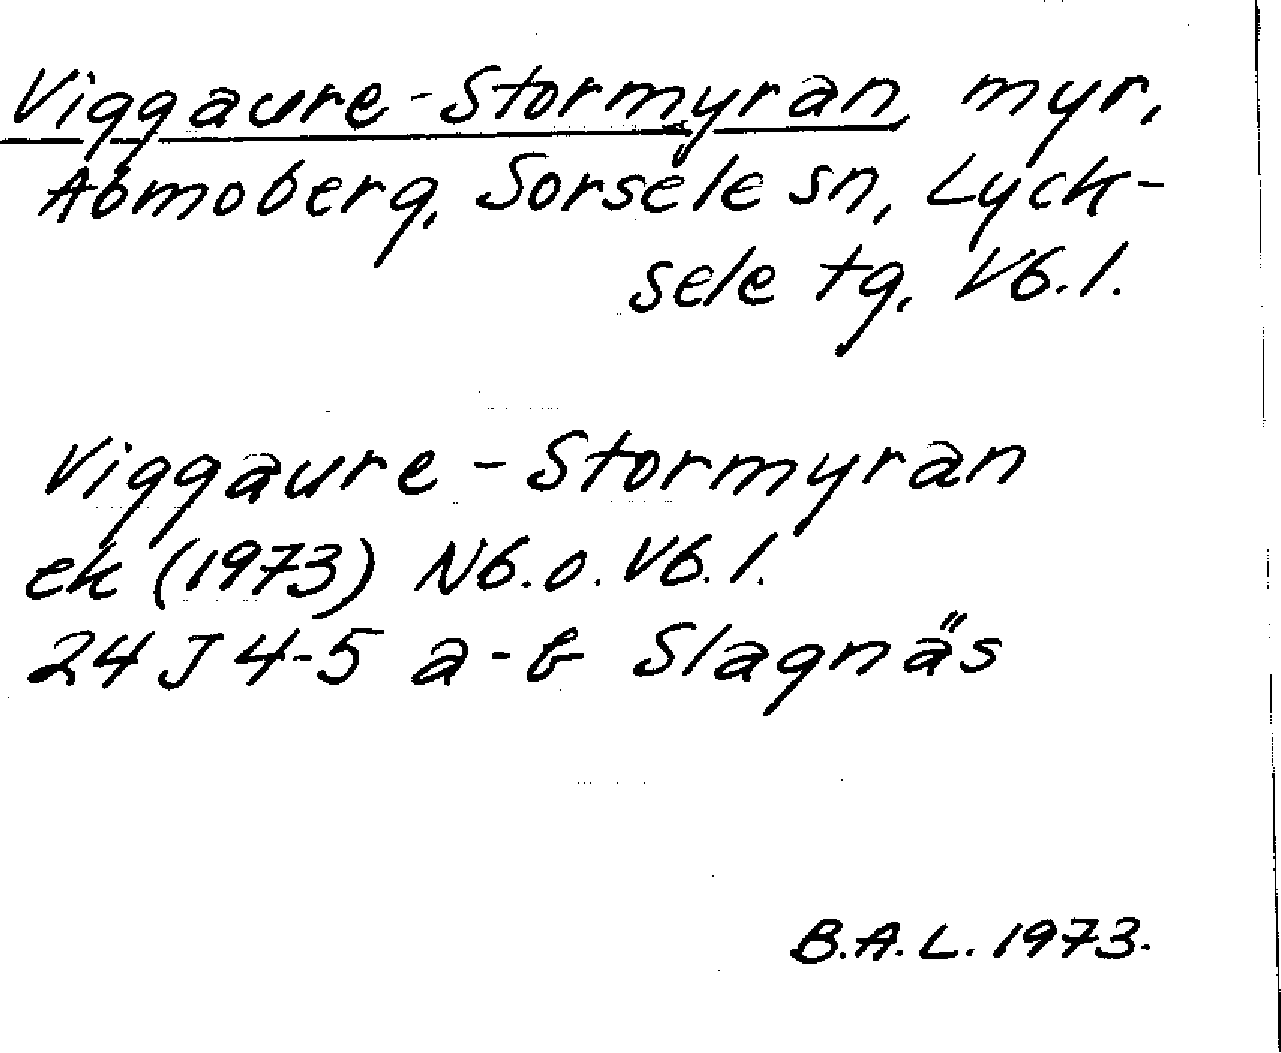 Viggaure-Stormyran, myr,
Abmoberg, Sorsele sn, Lyck-
sele tg, Vb.l.
Viggaure - Stormyran
ek (1973) Nb.o. Vb.l.
24 J 4-5 a-b Slagnäs
B.A.L. 1973.